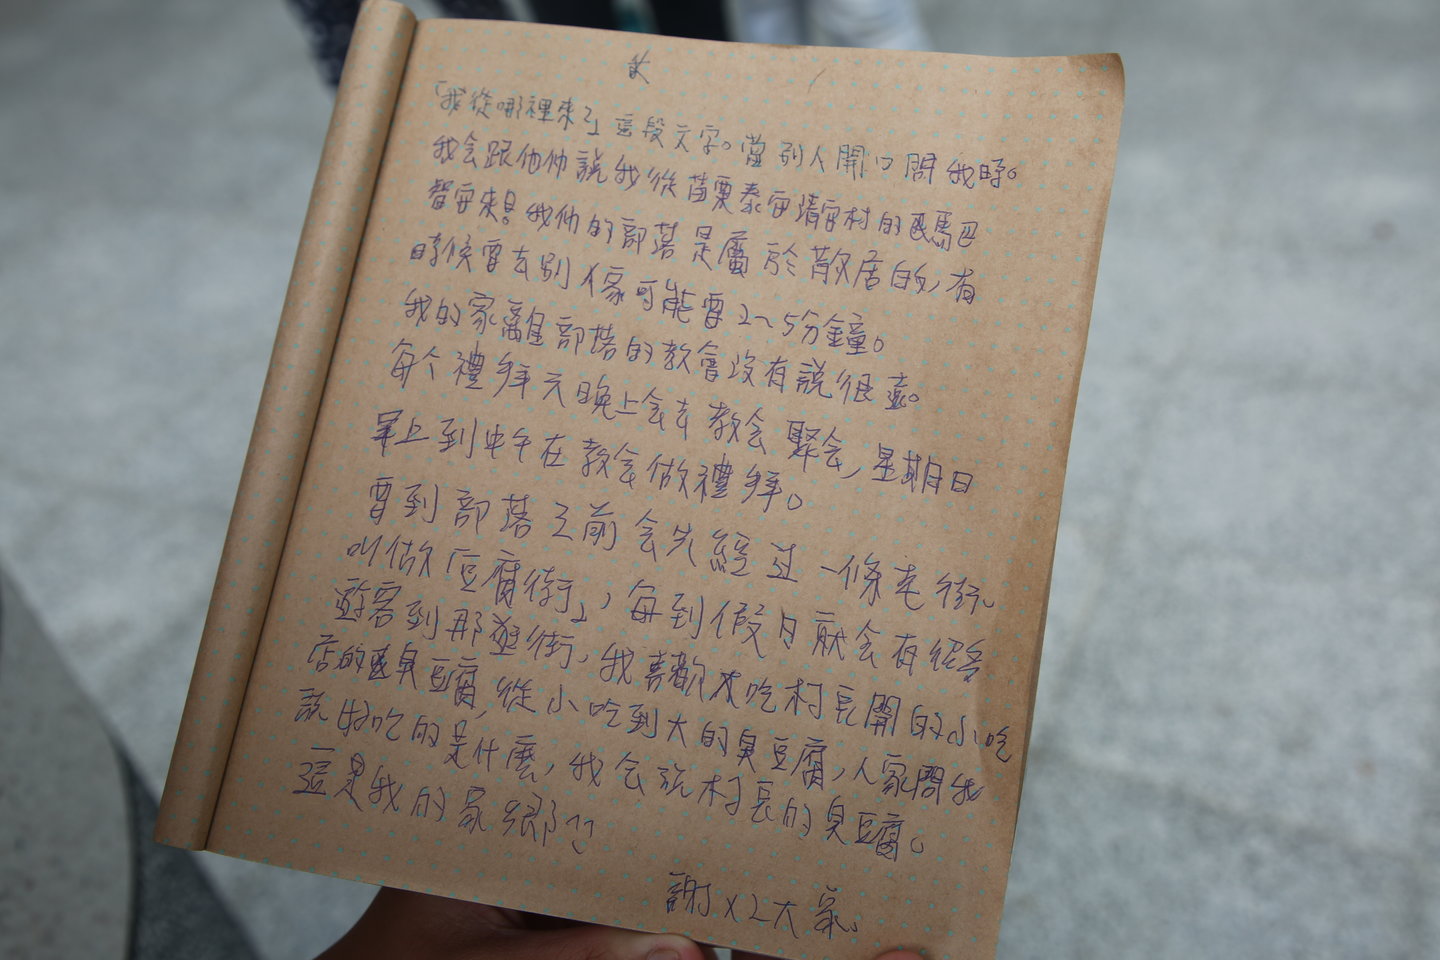 「我從哪裡來?」這段文字。當別人開口問我時。
我会跟他們說我從苗栗泰安清安村的巴馬巴
智安來! 我們的部落是屬於散居的,有
時候要去別人家可能要2~5分鐘。
我的家離部落的教會沒有說很遠。
每个禮拜天晚上会去教会聚会,星期日
早上到中午在教会做禮拜。
要到部落之前会先經过一條老街、
叫做「豆腐街」,每到假日就会有很多
遊客到那逛街,我喜歡吃村長開的小吃
店的臭豆腐,從小吃到大的臭豆腐,人家問我
說好吃的是什麼,我会說村長的臭豆腐。
這是我的家鄉^^
謝x2大家。